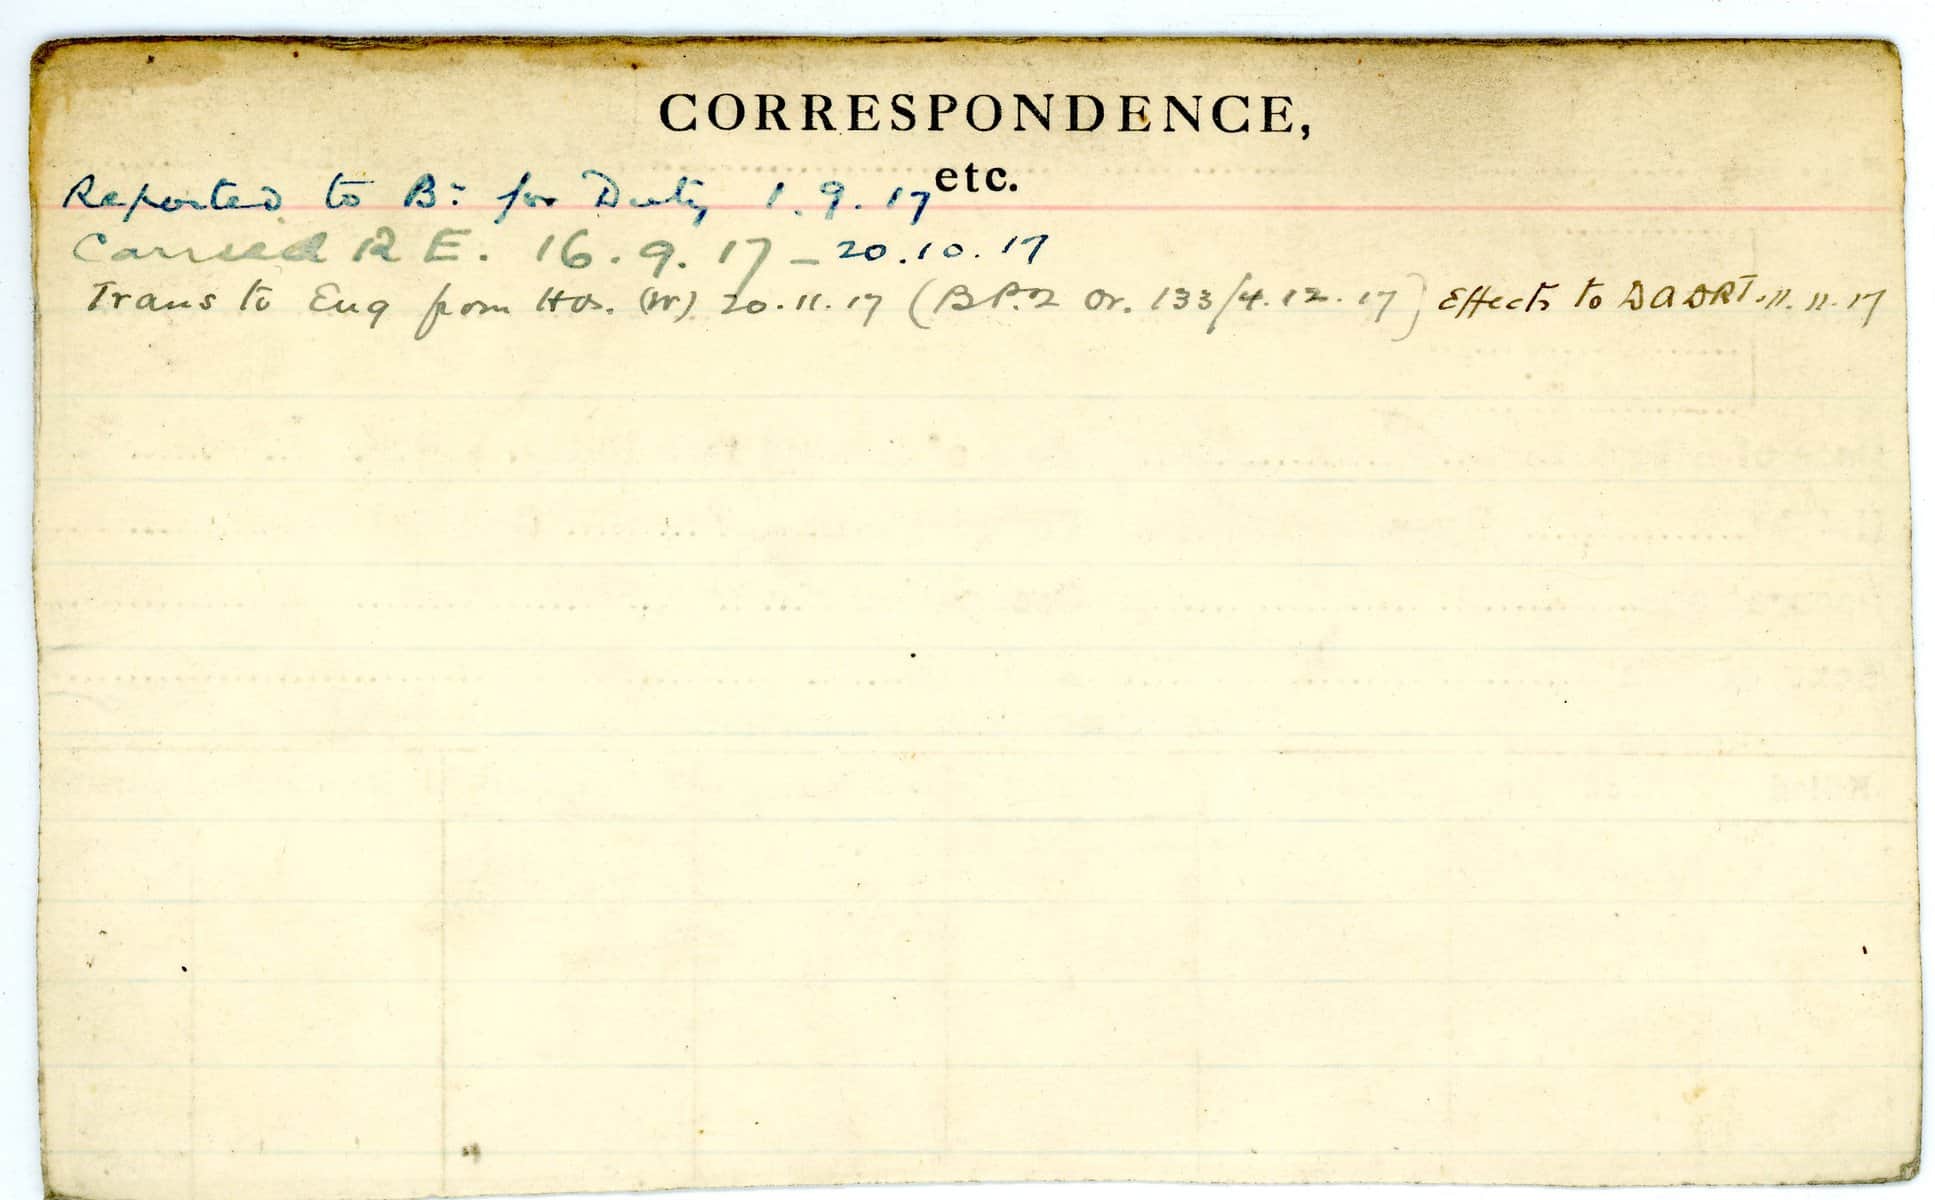 CORRESPONDENCE,
etc.
Reported to Bn for Duty 1.9.17
Carried R E. 16.9.17 - 20.10.17
Trans to Eng from Hos. (W) 20.11.17 (BP.2 Or. 133/4.12.17) Effects to DADRT. 11.11.17